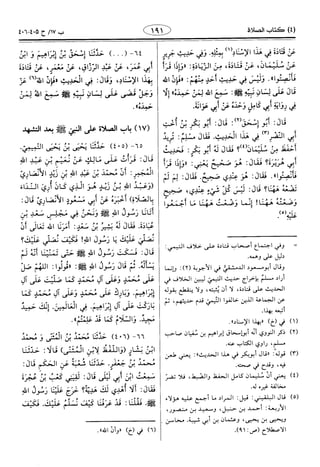 (٤) كتاب الصلاة
١٩١
ب ١٧/ ح ٤٠٥-٤٠٦
عن قتادة في هذا الإسناد(١) بمثله. وفي حديث جرير
عن سليمان، عن قتادة، من الزيادة: «وإذا قرأ
فأنصتوا». وليس في حديث أحد منهم: «فإن الله
قال على لسان نبيه ﷺ سمع الله لمن حمده» إلا
في رواية أبي كامل وحده عن أبي عوانة.
قال أبو إسحق(٢): قال أبو بكر بن أخت
أبي النضر(٣) في هذا الحديث. فقال مسلم: تريد
أحفظ من سليمان(٤)؟ فقال له أبو بكر: فحديث
أبي هريرة؟ فقال: هو صحيح يعني: «وإذا قرأ
فأنصتوا». فقال: هو عندي صحيح. فقال: لم لم
تضعه ههنا؟ قال: ليس كل شيء عندي، صحيح
وضعته ههنا؛ إنما وضعت ههنا ما أجمعوا
عليه(٥).
= وفي اجتماع أصحاب قتادة على خلاف التيمي:
دليل على وهمه.
(١) في (خ) «بهذا الإسناد».
مسلم، راوي الكتاب عنه.
(٣) قوله: «قال أبو بكر في هذا الحديث»: يعني طعن
فيه، وقدح في صحته.
(٤) يعني أن سليمان كامل الحفظ والضبط، فلا تضر
مخالفة غيره له.
الأربعة: أحمد بن حنبل، وسعيد بن منصور،
ويحيى بن يحيى، وعثمان بن أبي شيبة. محاسن
الاصطلاح (ص: ٩١).
٦٤- (...) حدثنا إسحق بن إبراهيم وابن
أبي عمر، عن عبد الرزاق، عن معمر، عن قتادة
بهذا الإسناد، وقال: في الحديث «فإن الله(٦) عز
وجل قضى على لسان نبيه ﷺ سمع الله لمن
حمده».
(١٧) باب الصلاة على النبي ﷺ بعد التشهد
٦٥- (٤٠٥) حدثنا يحيى بن يحيى التميمي.
قال: قرأت على مالك عن نعيم بن عبد الله
المجمر؛ أن محمد بن عبد الله بن زيد الأنصاري
(وعبد الله بن زيد هو الذي كان أري النداء
بالصلاة) أخبره عن أبي مسعود الأنصاري قال:
أتانا رسول الله ﷺ ونحن في مجلس سعد بن
عبادة. فقال له بشير بن سعد: أمرنا الله تعالى أن
نصلي عليك يا رسول الله! فكيف نصلي عليك؟
قال: فسكت رسول الله ﷺ. حتى تمنينا أنه لم
يسأله. ثم قال رسول الله ﷺ: «قولوا: اللهم صل
على محمد وعلى آل محمد كما صليت على آل
إبراهيم. وبارك على محمد وعلى آل محمد كما
باركت على آل إبراهيم. في العالمين. إنك حميد
مجيد. والسلام كما قد علمتم».
٦٦- (٤٠٦) حدثنا محمد بن المثنى و محمد
ابن بشار (واللفظ لابن المثنى) قالا: حدثنا
محمد بن جعفر. حدثنا شعبة عن الحكم قال:
سمعت ابن أبي ليلى قال: لقيني كعب بن عجرة
فقال: ألا أهدي لك هدية؟ خرج علينا رسول الله
ﷺ. فقلنا: قد عرفنا كيف نسلم عليك. فكيف
(٦) في (خ) «وأن الله».